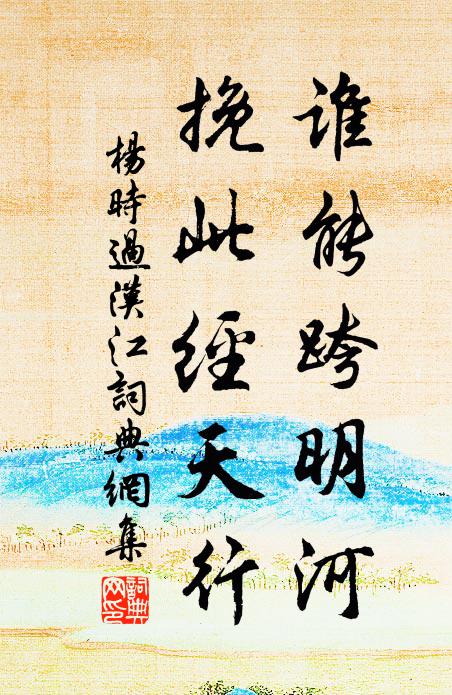 谁能跨明河
挽此經天行
楊時過漢江詞典網集
詞典
网印